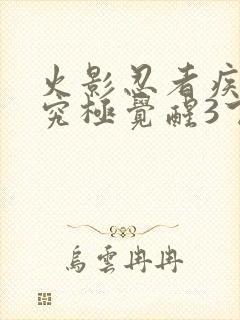 火影忍者疾
究極覺醒3
烏雲冉冉